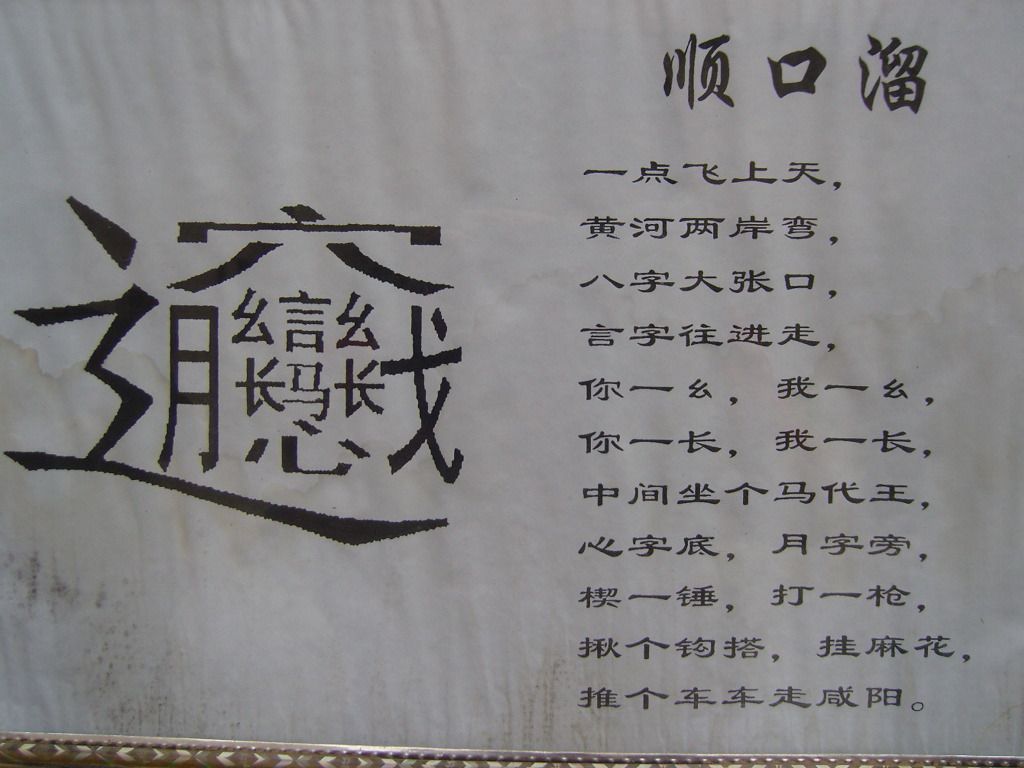 顺口溜
𰻝
一点飞上天，
黄河两岸弯，
八字大张口，
言字往进走，
你一幺，我一幺，
你一长，我一长，
中间坐个马代王，
心字底，月字旁，
楔一锤，打一枪，
揪个钩搭，挂麻花，
推个车车走咸阳。